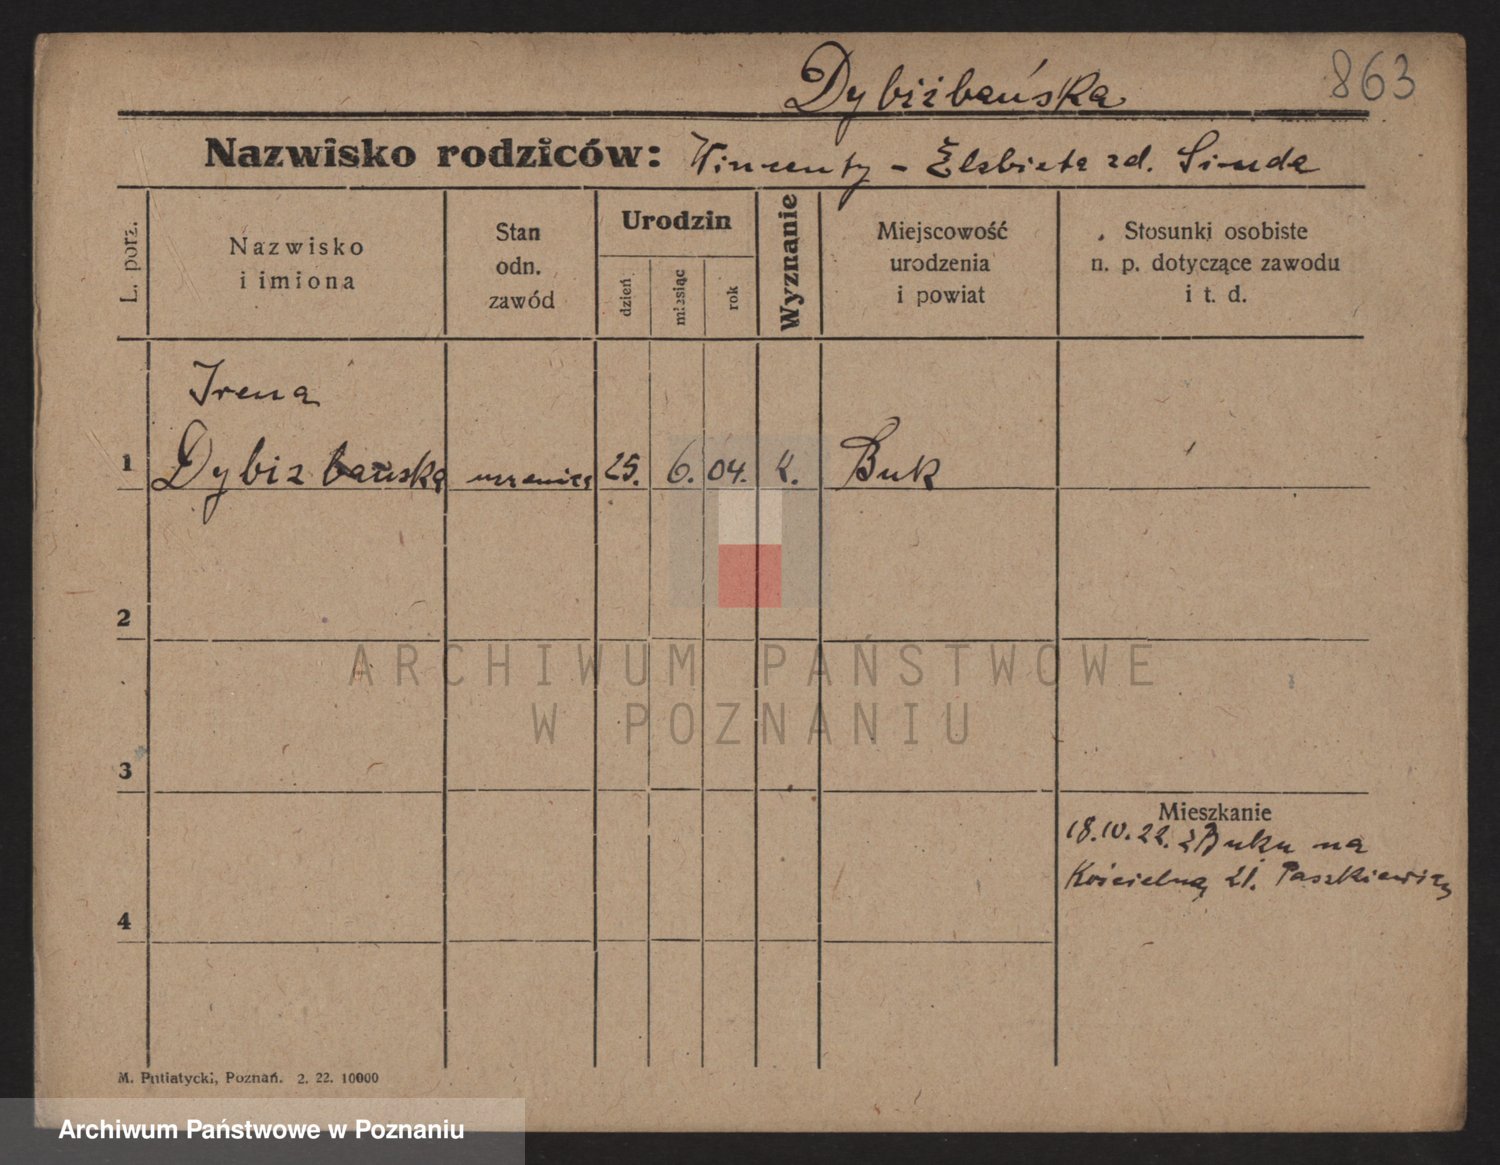 Dybizbańska 863
Nazwisko rodziców: Wincenty - Elżbieta zd. Sinda
L. porz.
Nazwisko
i imiona
Stan
odn.
zawód
Urodzin
dzień
miesiąc
rok
Wyznanie
Miejscowość
urodzenia
i powiat
Stosunki osobiste
n. p. dotyczące zawodu
i t. d.
Irena
1 Dybizbańska uczenica 25. 6. 04. k. Buk
2
ARCHIWUM PAŃSTWOWE
W POZNANIU
3
Mieszkanie
18.IV.22. z Buku na
Kościelną 21. Paszkiewicz
4
M. Putiatycki, Poznań. 2. 22. 10000
Archiwum Państwowe w Poznaniu